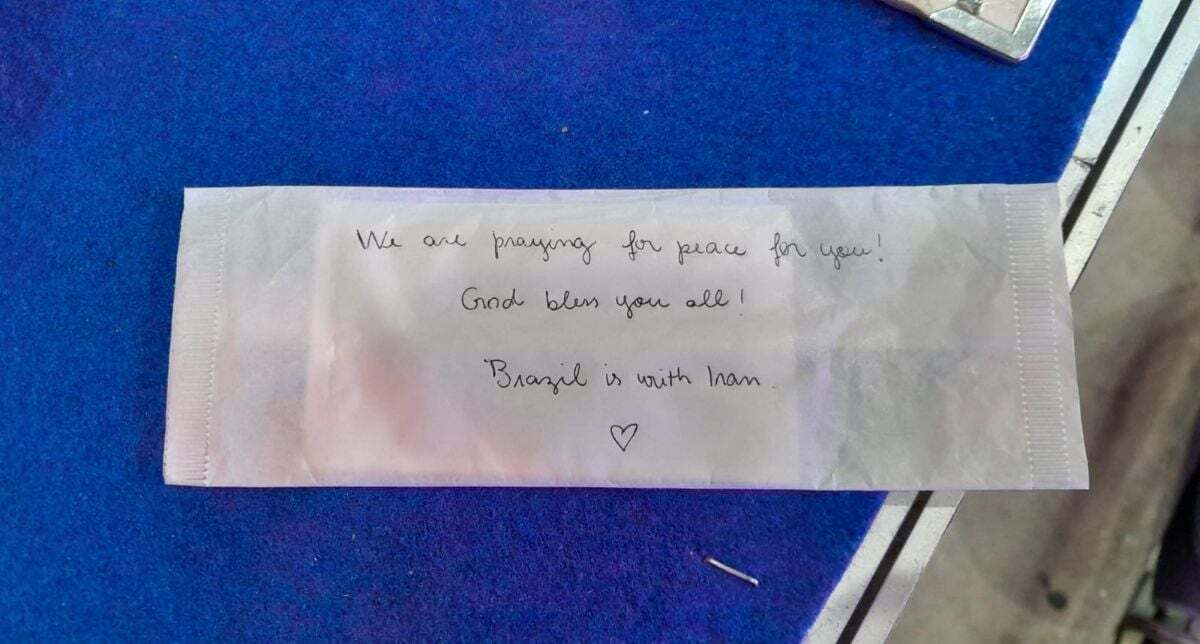 We are praying for peace for you!
God bless you all!
Brazil is with Iran.
♡